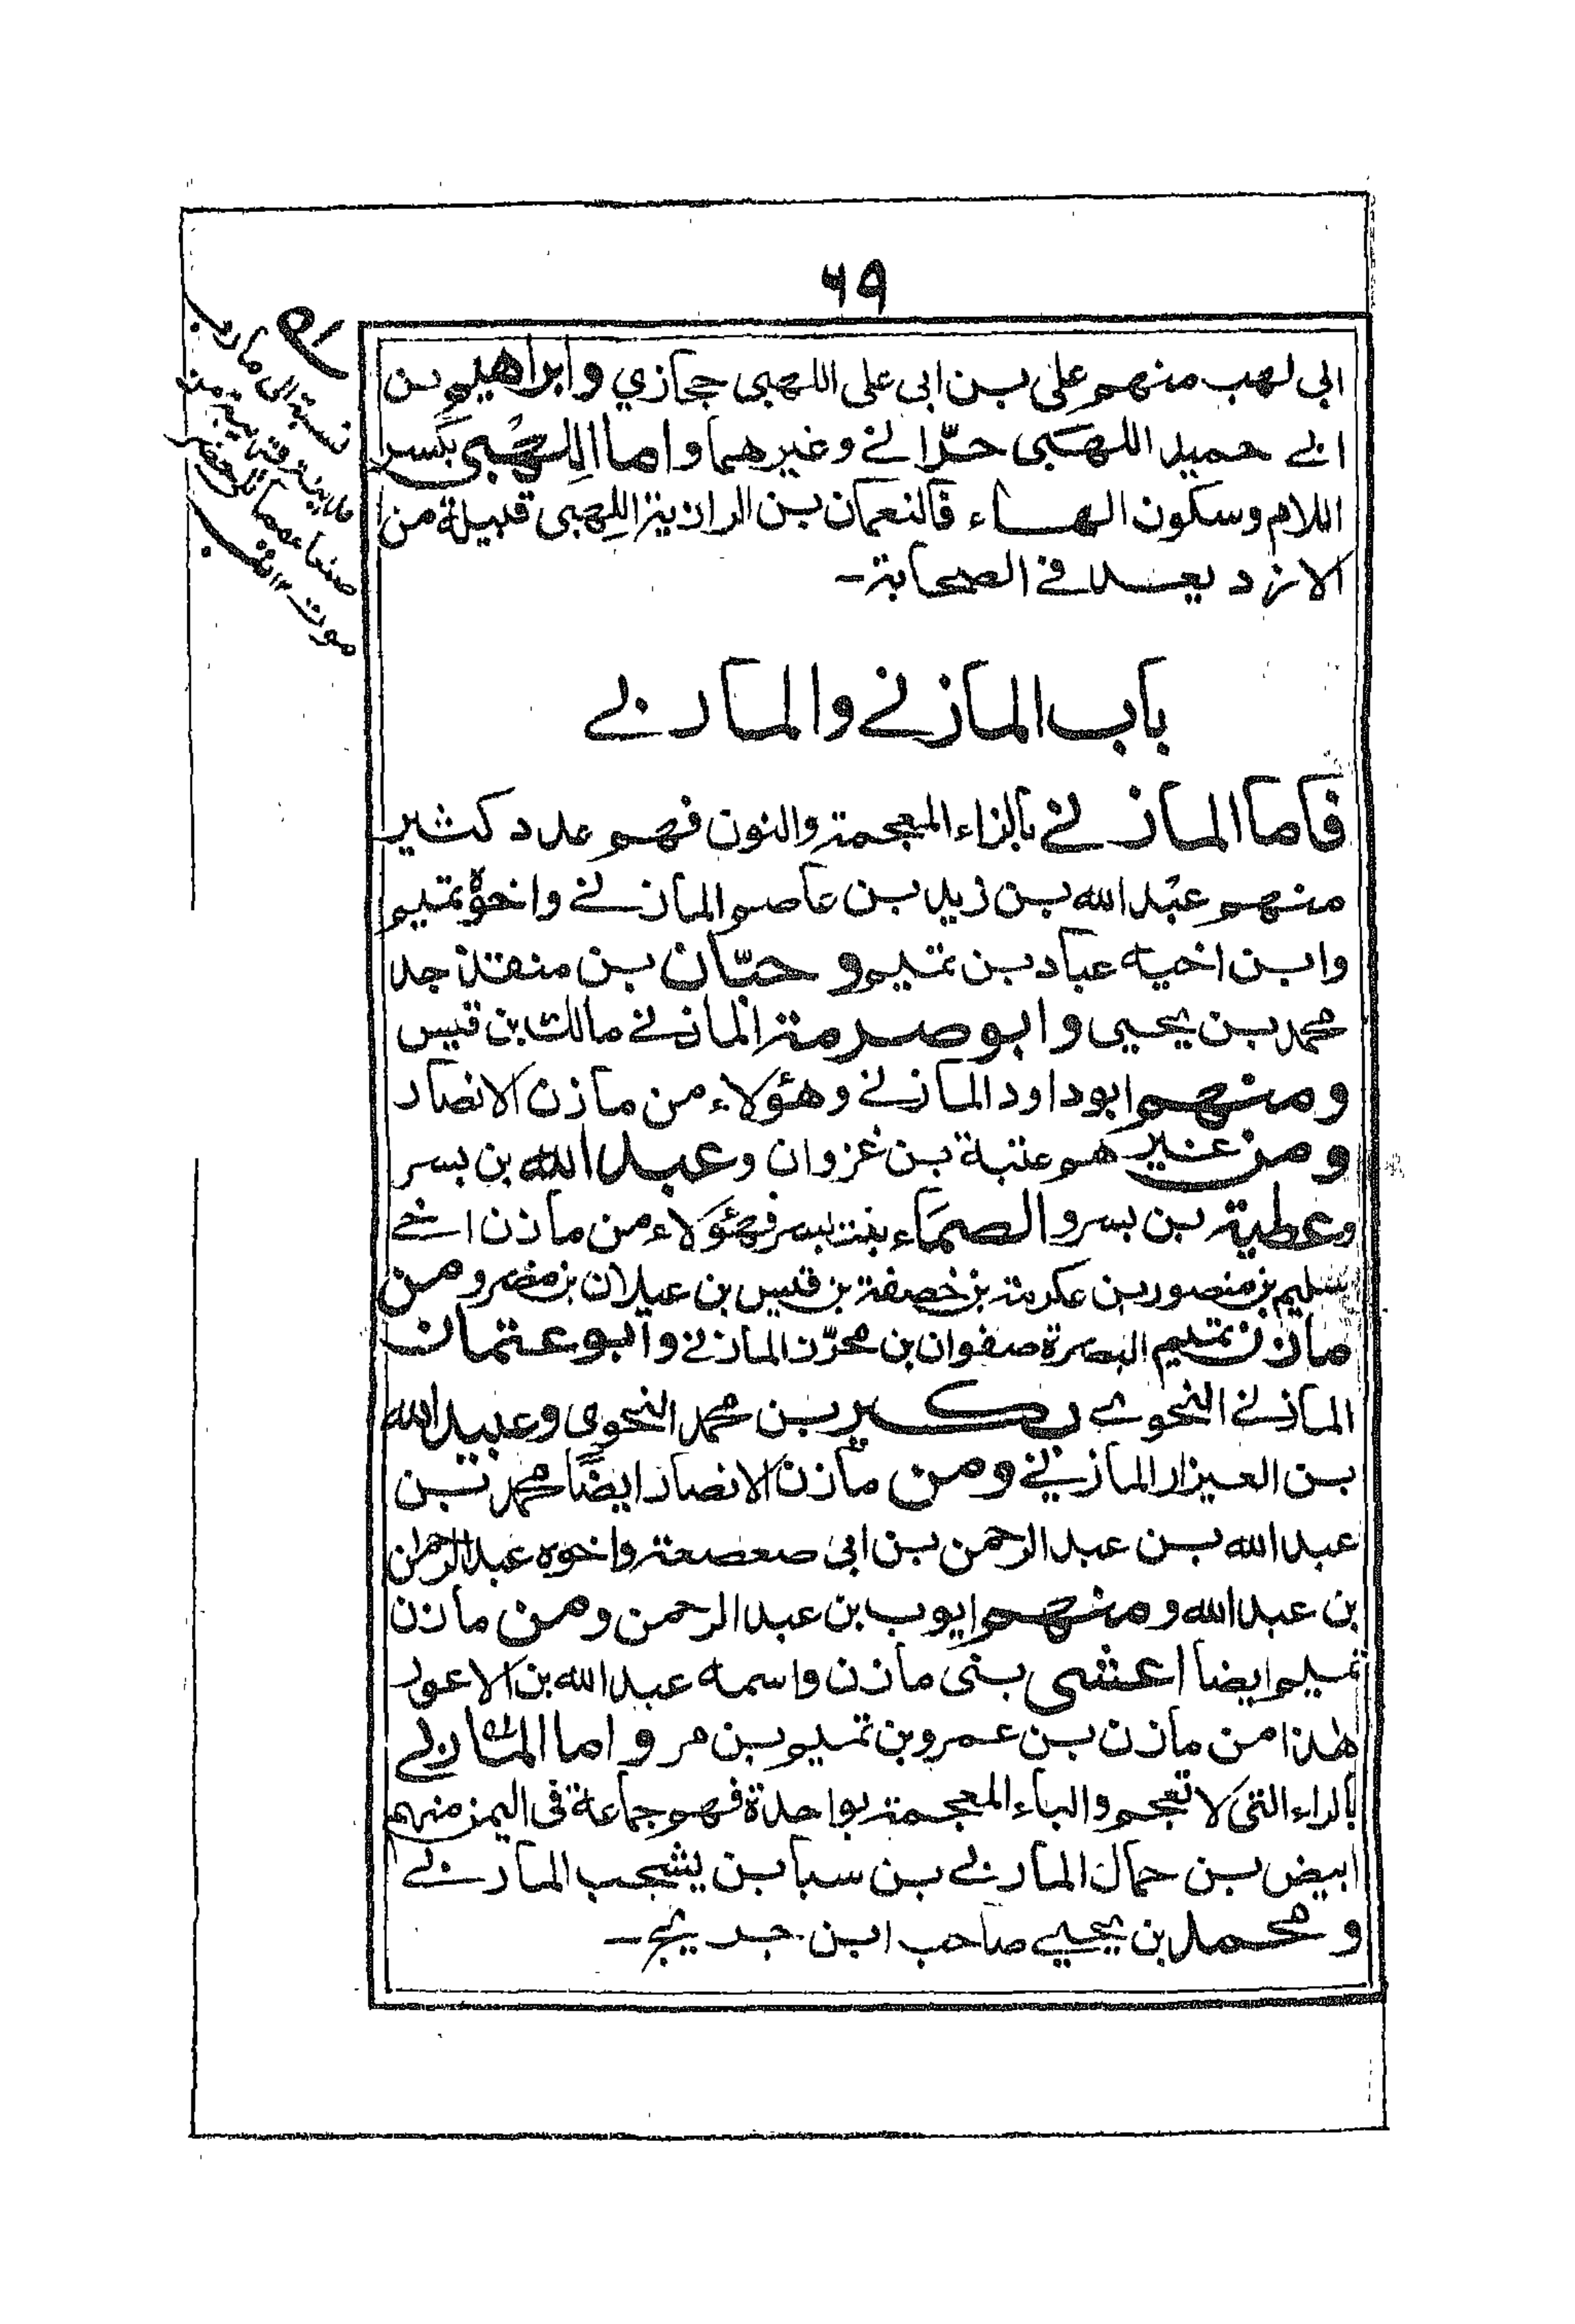 ٦٩
ابی لهب منهم علی بن ابی علی اللهبی حجازي وابراهیم بن
ابی حمید اللهَبی حرّانی وغیرهما واما اللِهْبی بکسر
اللام وسکون الهاء فالنعمان بن الرازیة اللِهبی قبیلة من
الازد یعد فی الصحابة-
باب المازنی والماربی
فاما المازنی بالزاء المعجمة والنون فهم عدد کثیر
منهم عبد الله بن زید بن عاصم المازنی واخوه تمیم
وابن اخیه عباد بن تمیم و حبّان بن منقذ جد
محمد بن یحیی و ابو صرمة المازنی مالك بن قیس
ومنهم ابوداود المازنی وهؤلاء من مازن الانصار
ومن غیرهم عتبة بن غزوان وعبد الله بن بسر
وعطیة بن بسر والصمَّاء بنت بسر فهؤلاء من مازن اخی
سلیم بن منصور بن عکرمة بن خصفة بن قیس بن عیلان بن مضر ومن
مازن تمیم البصرة صفوان بن محرّز المازنی وابو عثمان
المازنی النحوی بکر بن محمد النحوی وعبید الله
بن العیزار المازنی ومن مازن الانصار ایضًا محمد بن
عبد الله بن عبد الرحمن بن ابی صعصعة واخوه عبد الرحمن
بن عبد الله ومنهم ایوب بن عبد الرحمن ومن مازن
تمیم ایضا اعشی بنی مازن واسمه عبد الله بن الاعور
هذا من مازن بن عمرو بن تمیم بن مر واما الماربی
بالراء التی لا تعجم والباء المعجمة بواحدة فهم جماعة فی الیمن منهم
ابیض بن حمال الماربی بن سبا بن یشجب الماربی
ومحمد بن یحیی صاحب ابن جریج-
نسبة الی مارب
مدینة قریبة من
صنعا
موت ١٢